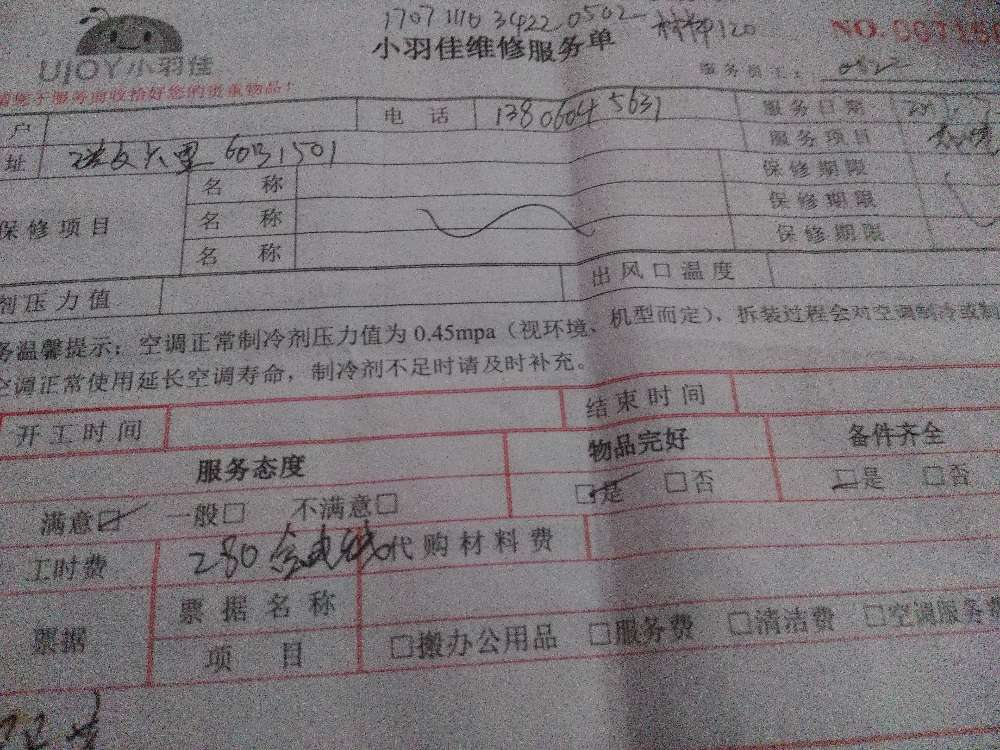 1707 1110 3422 0502
小羽佳维修服务单
NO.
UJOY小羽佳
服务员工：
户 电 话 服务日期
址 60号1501 服务项目
保修项目 名 称 保修期限
名 称 保修期限
名 称 保修期限
剂压力值 出风口温度
务温馨提示：空调正常制冷剂压力值为 0.45mpa（视环境、机型而定），拆装过程会对空调制冷或制
空调正常使用延长空调寿命，制冷剂不足时请及时补充。
开工时间 结束时间
服务态度 物品完好 备件齐全
满意□ 一般□ 不满意□ □是 □否 □是 □否
工时费 280 含电线 代购材料费
票据 票据名称
项 目 □搬办公用品 □服务费 □清洁费 □空调服务费